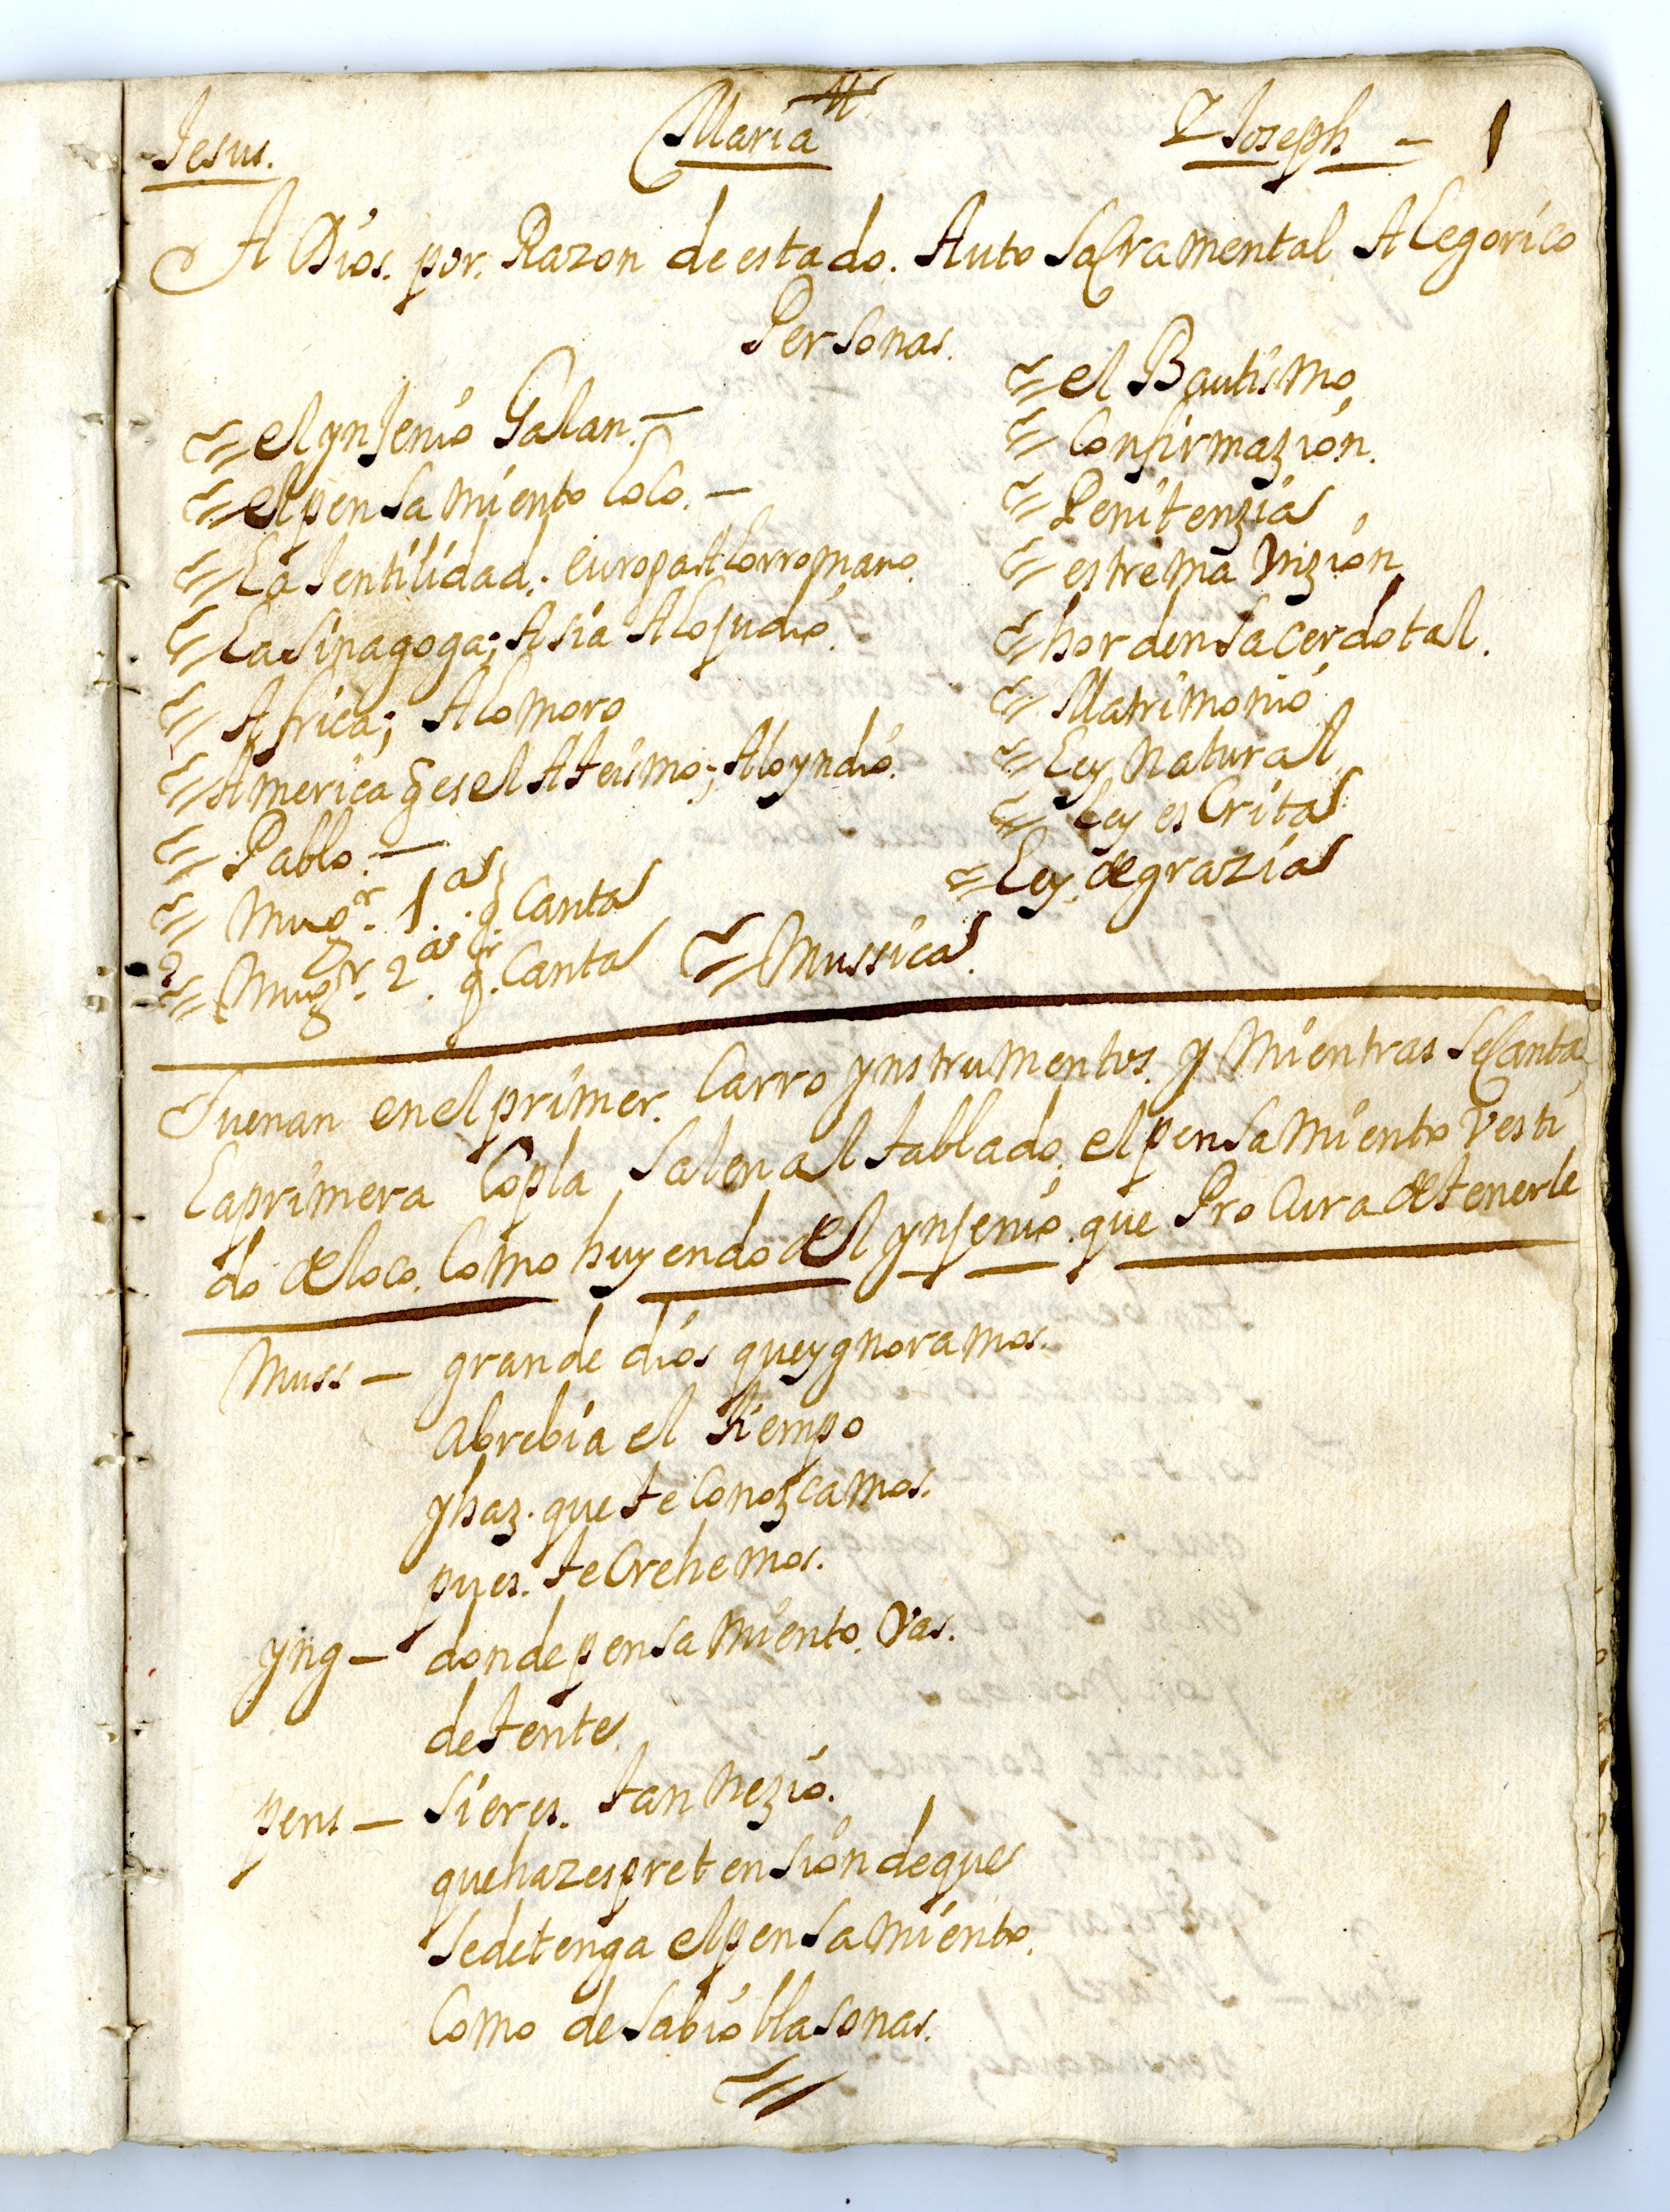 Jesus. Maria Y Joseph – 1
A Dios. por. Razon de estado. Auto Sacramental Alegorico
Personas.
el ynjenio Galan. –
el pensamiento loco. –
La Jentilidad. europa A lo rromano.
La Sinagoga; Asia A lo judio.
Africa; A lo moro
America q̃ es el Ateismo; A lo yndio.
Pablo. –
Mugr. 1a. q. Canta
Mugr. 2a. q. Canta
el Bautismo
Confirmazion.
Penitenzia
estrema Vnzion
horden Sacerdotal.
Matrimonio
Ley Natural
Ley esCrita
Ley. de grazia
Mussica.
Suenan en el primer. Carro ynstrumentos. y Mientras Se Canta
La primera Copla Salen al tablado. el pensamiento Vesti
do de loco. Como huyendo del ynjenio. que ProCura detenerle
Muss – grande dios que ygnoramos.
Abrebia el tiempo
y haz. que te Conozcamos.
pues. te Crehemos.
yng – donde pensamiento. Vas.
detente.
pens – Si eres. tan Nezio.
que hazes pretension de que
Se detenga el pensamiento.
Como de Sabio blasonas.